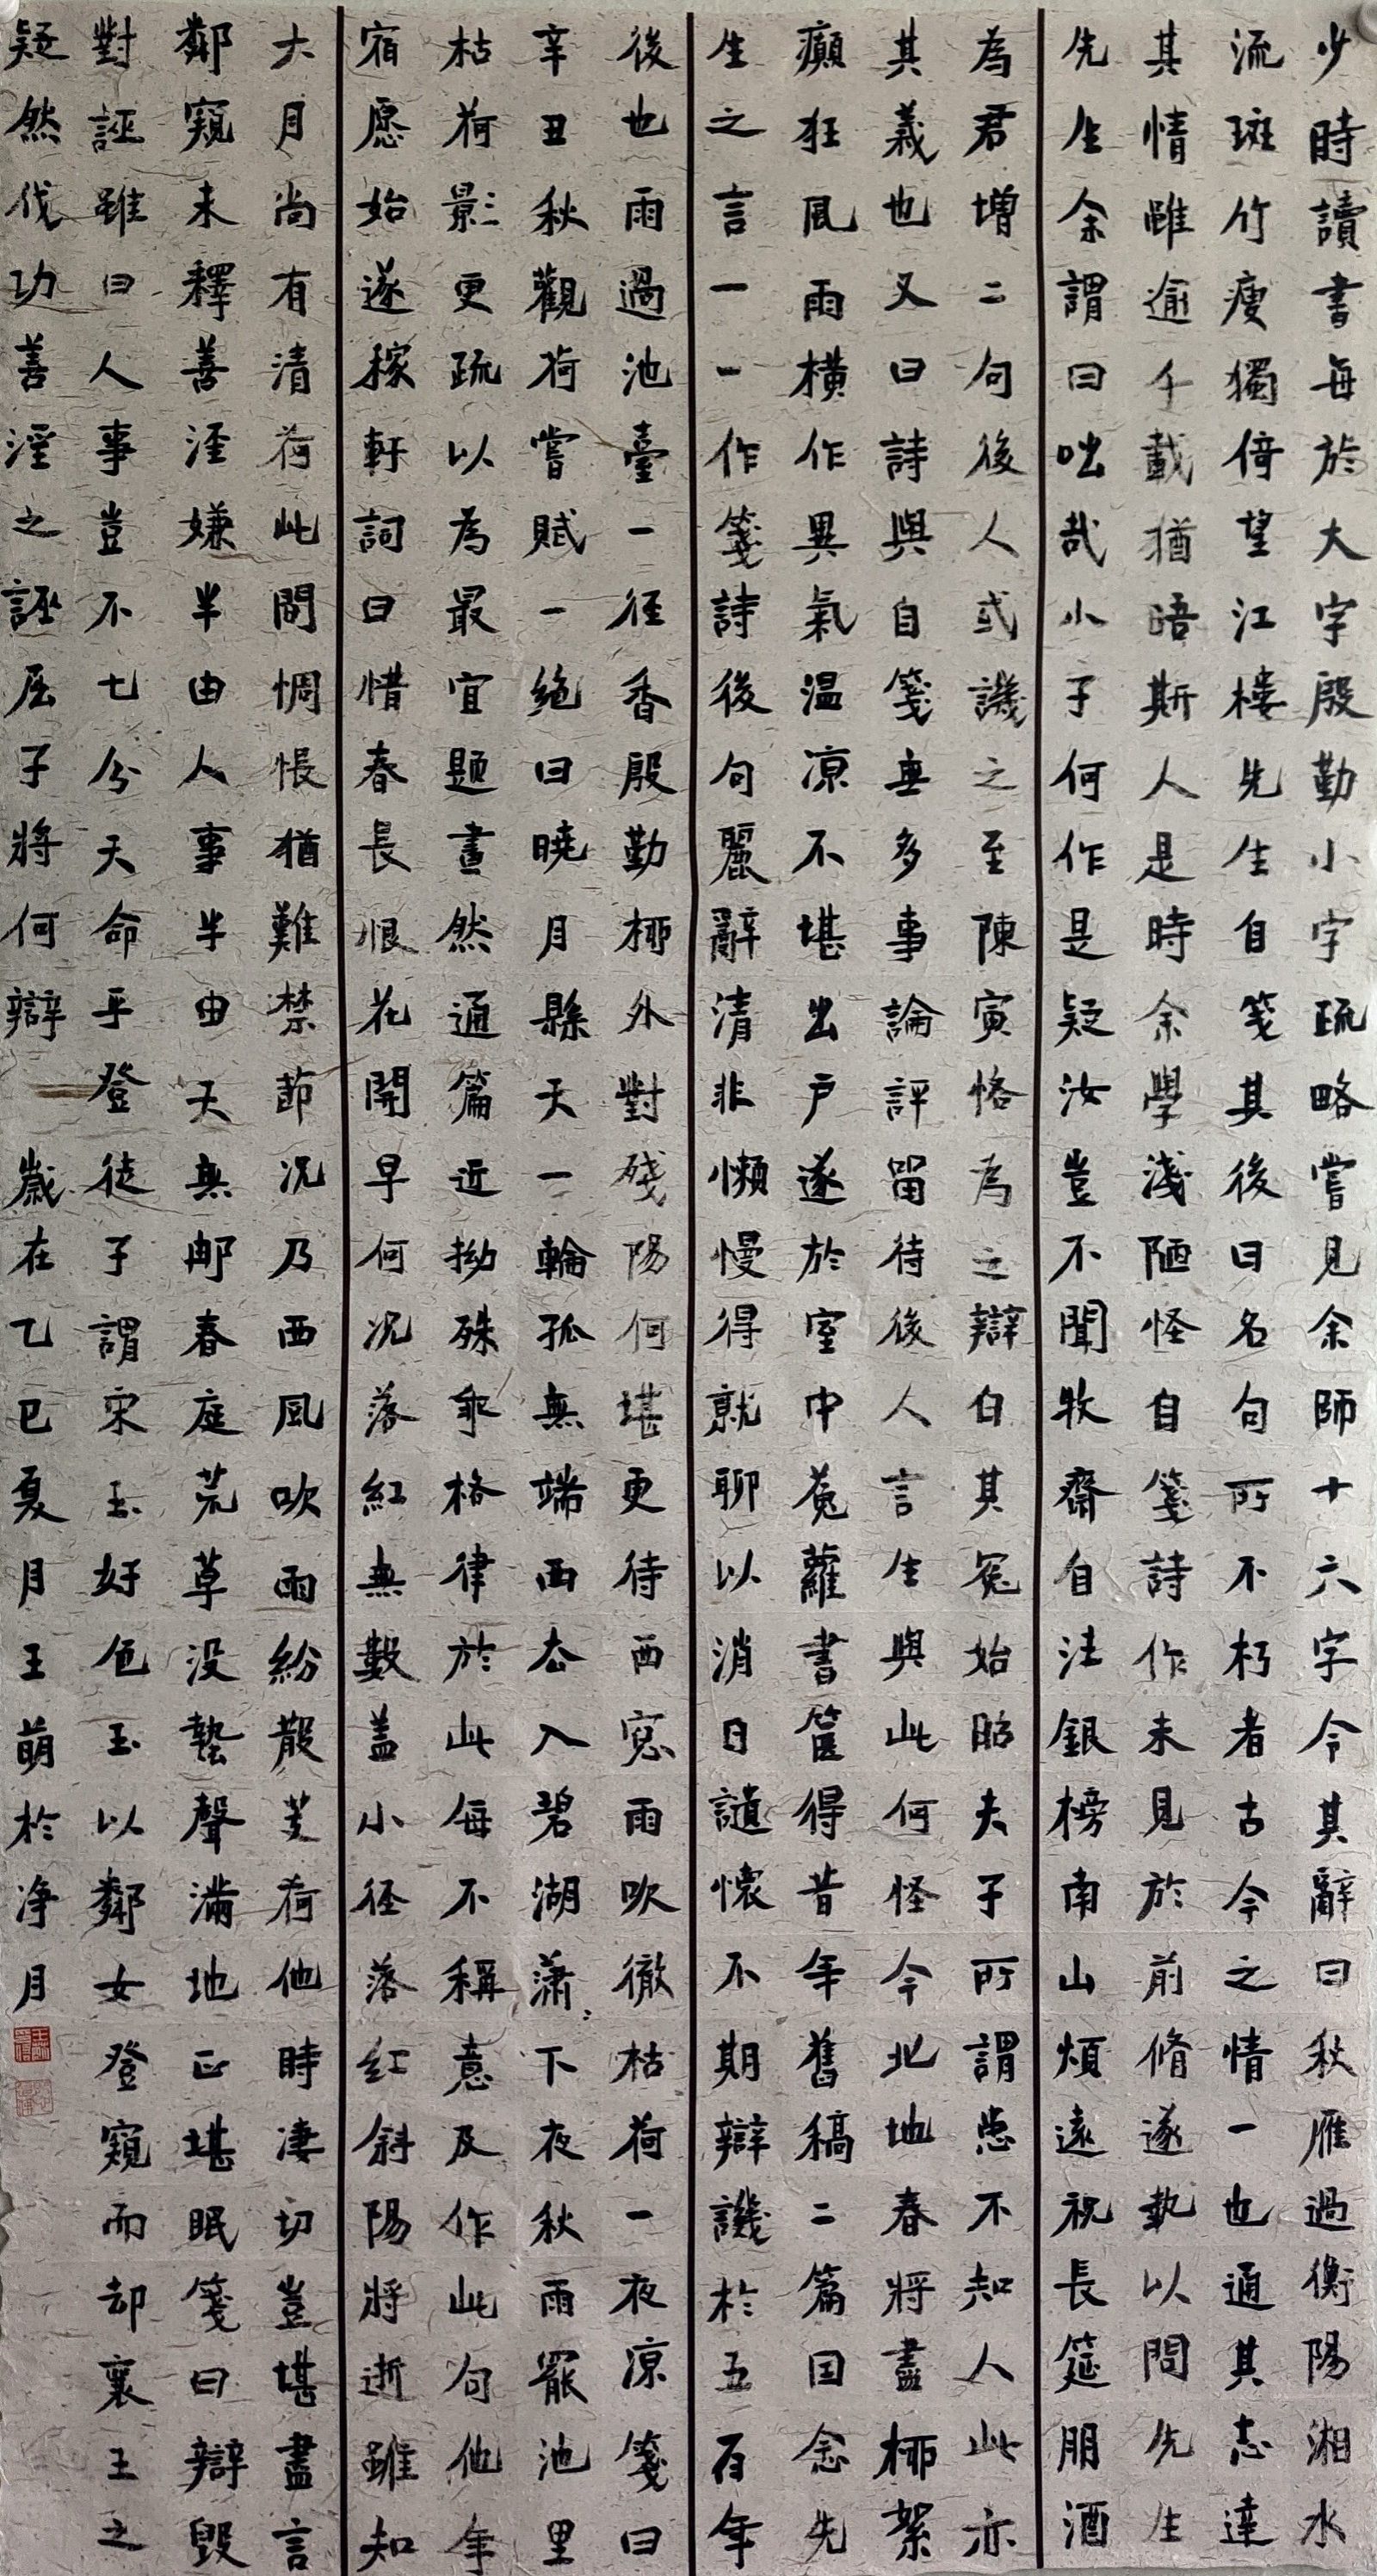 少時讀書每於大字殷勤小字疏略嘗見余師十六字令其辭曰秋雁過衡陽湘水
流斑竹瘦獨倚望江樓先生自箋其後曰名句所不朽者古今之情一也通其志達
其情雖逾千載猶晤斯人是時余學淺陋怪自箋詩作未見於前脩遂執以問先生
先生余謂曰咄哉小子何作是疑汝豈不聞牧齋自法銀榜南山煩遠祝長筵朋酒
為君增二句後人或譏之至陳寅恪為之辯白其冤始昭夫子所謂患不知人此亦
其義也又曰詩與自箋無多事論評留待後人言生與此何怪今北地春將盡柳絮
癲狂風雨橫作異氣溫涼不堪出戶遂於室中蒐蘿書篋得昔年舊稿二篇因念先
生之言一一作箋詩後句麗辭清非懶慢得就聊以消日譴懷不期辯譏於五百年
後也雨過池臺一徑香殷勤柳外對殘陽何堪更待西窓雨吹徹枯荷一夜涼箋曰
辛丑秋觀荷嘗賦一絕曰曉月懸天一輪孤無端西去入碧湖瀟瀟下夜秋雨罷池里
枯荷影更疏以為最宜題畫然通篇近拗殊乖格律於此每不稱意及作此句他年
宿愿始遂稼軒詞曰惜春長恨花開早何況落紅無數盖小徑落红斜陽將逝雖知
大月尚有清荷此間惆悵猶難禁節况乃西風吹雨紛散芰荷他時淒切豈堪盡言
鄰窺未釋善淫嫌半由人事半由天無邮春庭荒草没蛰聲滿地正堪眠箋曰辯毀
對誣雖曰人事豈不七分天命乎登徒子謂宋玉好色玉以鄰女登窺而却襄王之
疑然伐功善淫之誣屈子將何辯　歲在乙巳夏月王萌於净月